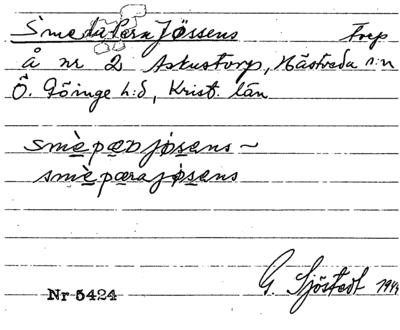 Smeda Pern Jössens torp
å nr 2 Askustorp, Nästveda s:n
Ö. Göinge h:d, Krist. län
smèpæṇjösens ~
smèpærajösens
G. Sjöstedt 194
Nr 5424